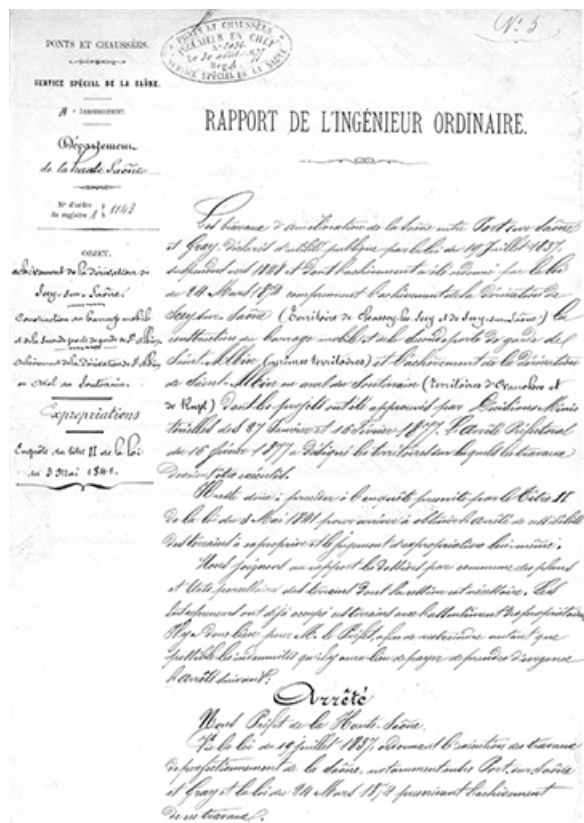 N° 5
PONTS ET CHAUSSÉES
INGÉNIEUR EN CHEF
SERVICE SPÉCIAL DE LA SAÔNE
PONTS ET CHAUSSÉES.
SERVICE SPÉCIAL DE LA SAÔNE.
ARRONDISSEMENT.
Département
de la Haute Saône
N° d'ordre
du registre 1143
OBJET.
achèvement de la dérivation de
Scey-sur-Saône.
Construction du barrage mobile
et de la porte de garde de St Albin
achèvement de la dérivation de St Albin
en aval du Souterrain.
Expropriations
Enquête du titre II de la loi
du 3 Mai 1841.
RAPPORT DE L'INGÉNIEUR ORDINAIRE.
Les travaux d'amélioration de la Saône entre Port sur Saône
et Gray, déclarés d'utilité publique par la loi du 19 Juillet 1837,
suspendus et dont l'achèvement a été ordonné par la loi
du 24 Mars 1874 comprennent l'achèvement de la dérivation de
Scey sur Saône (territoire de Chassey les Scey et de Scey sur Saône) la
construction du barrage mobile et de la porte de garde de
Saint-Albin (mêmes territoires) et l'achèvement de la dérivation
de Saint-Albin en aval du Souterrain (territoires d'Ovanches et
de Rupt) dont les projets ont été approuvés par Décisions Minis
térielles des 27 Janvier et 16 Février 1877. L'arrêté Préfectoral
du 16 février 1877 a désigné les territoires sur lesquels les travaux
devaient être exécutés.
Il reste donc à procéder à l'enquête prescrite par le titre II
de la loi du 3 Mai 1841 pour arriver à obtenir l'arrêté de cessibilité
des terrains à exproprier et le jugement d'expropriation lui-même.
Nous joignons au rapport les dossiers par commune des plans
et états parcellaires des terrains dont la cession est nécessaire. Les
entrepreneurs ont déjà occupé ces terrains avec l'assentiment des propriétaires
Il y a donc lieu pour M. le Préfet, afin de restreindre autant que
possible les indemnités qu'il y aura lieu de payer de prendre d'urgence
l'arrêté suivant:
Arrêté
Nous Préfet de la Haute-Saône.
Vu la loi du 19 juillet 1837 ordonnant l'exécution des travaux
de perfectionnement de la Saône, notamment entre Port sur Saône
et Gray et la loi du 24 Mars 1874 prescrivant l'achèvement
de ces travaux.